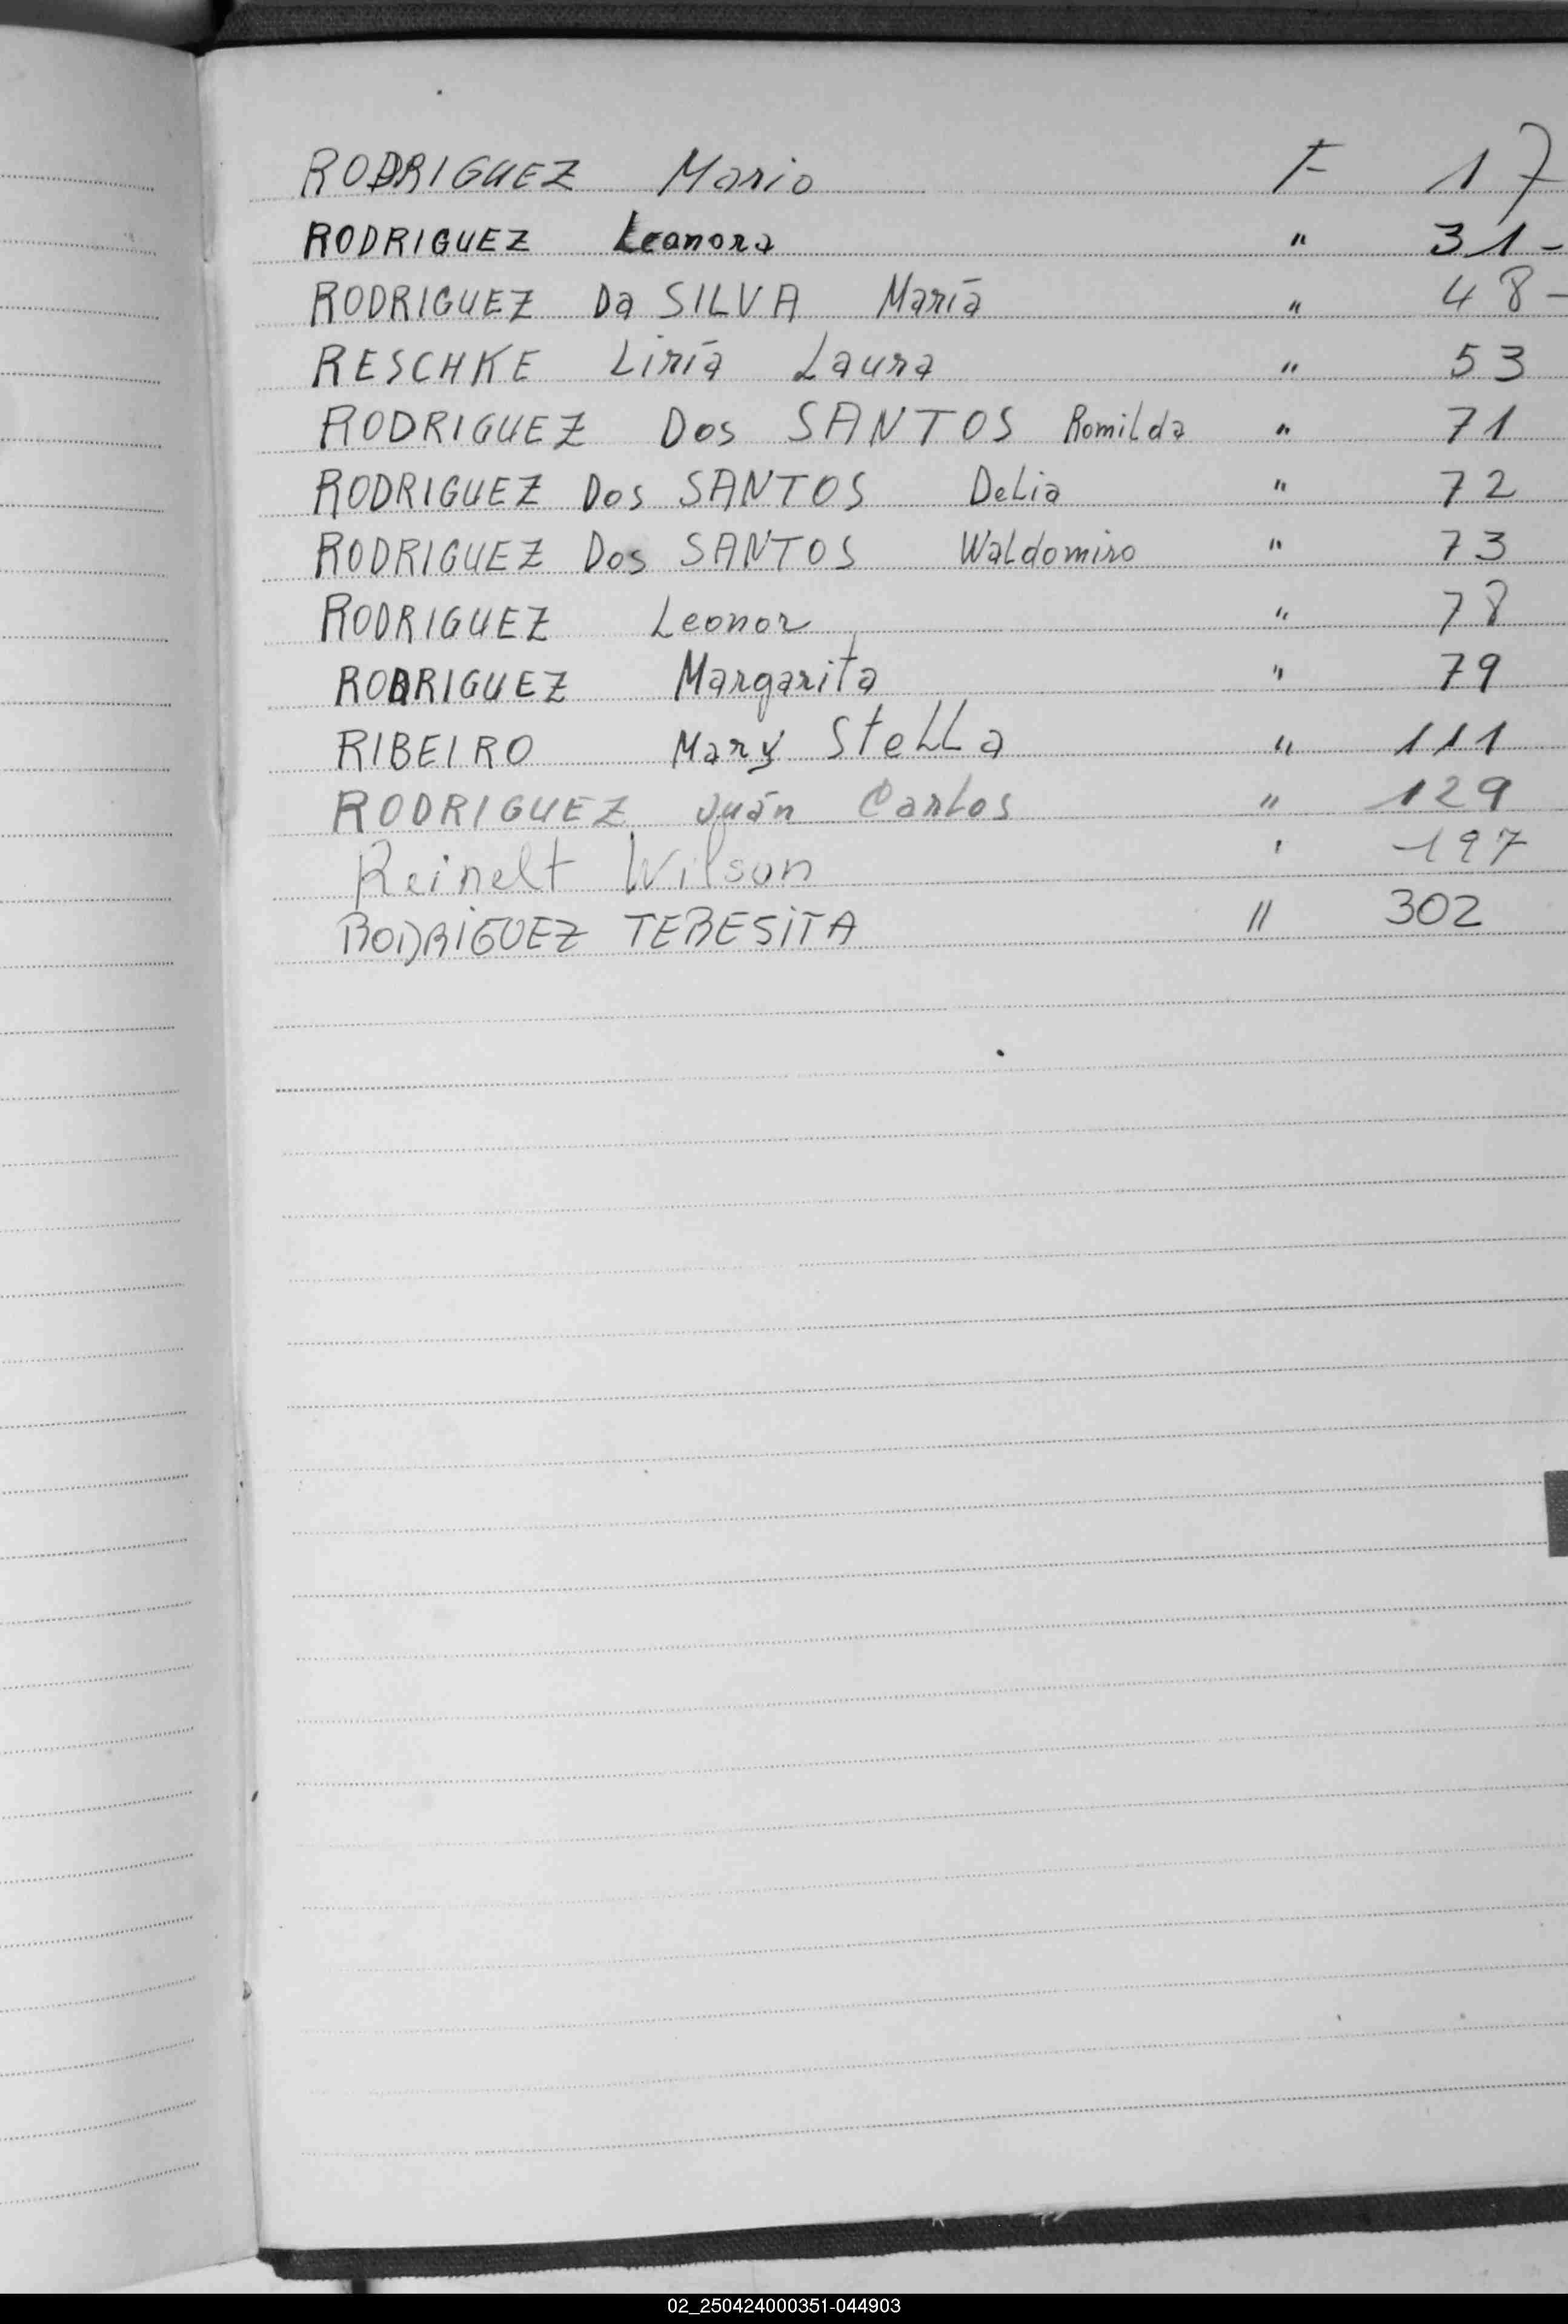 RODRIGUEZ Mario F 17
RODRIGUEZ Leonora " 31-
RODRIGUEZ Da SILVA María " 48-
RESCHKE Liría Laura " 53
RODRIGUEZ Dos SANTOS Romilda " 71
RODRIGUEZ Dos SANTOS Delia " 72
RODRIGUEZ Dos SANTOS Waldomiro " 73
RODRIGUEZ Leonor " 78
RODRIGUEZ Margarita " 79
RIBEIRO Mary Stella " 111
RODRIGUEZ Juán Carlos " 129
Reinelt Wilson ' 197
RODRIGUEZ TERESITA " 302
02_250424000351-044903